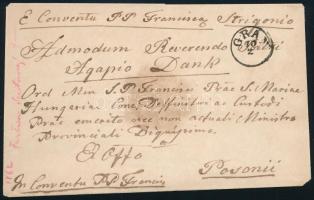 E Conventu P.P. Francisc. Strigonio
GRAN
Admodum Reverendo Patri
Agapio Dank
Ord Min S.P. Francisci Prae S. Mariae
Hungariae Conv. Definit. ac Custodi
Prae emerito nec non actuali Ministro
Provinciali Dignissimo.
Ex Offo
Posonii
In Conventu P.P. Francis
1862